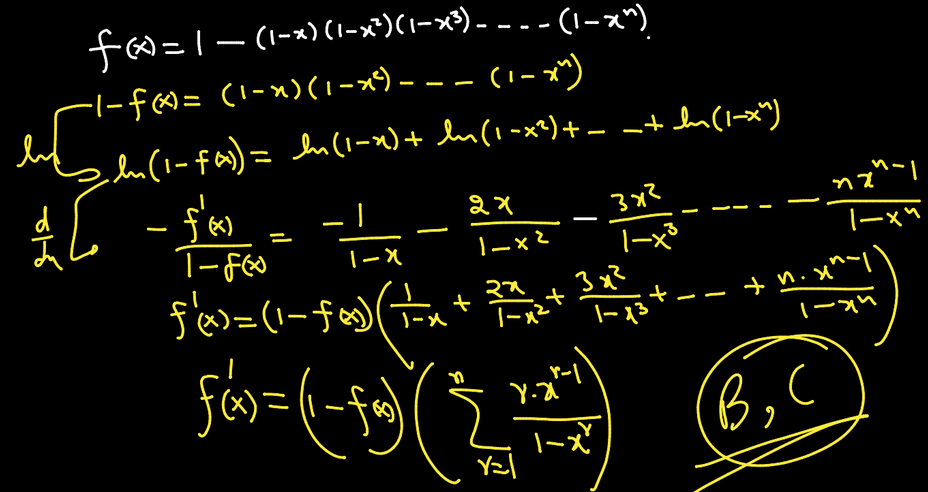 f(x) = 1 - (1-x)(1-x²)(1-x³) ----- (1-xⁿ).
1-f(x) = (1-x)(1-x²) ---- (1-xⁿ)
ln
ln(1-f(x)) = ln(1-x) + ln(1-x²) + -- -+ ln(1-xⁿ)
d/dx
- f'(x)/(1-f(x)) = -1/(1-x) - 2x/(1-x²) - 3x²/(1-x³) ----- - nxⁿ⁻¹/(1-xⁿ)
f'(x) = (1-f(x)) (1/(1-x) + 2x/(1-x²) + 3x²/(1-x³) + --- + n·xⁿ⁻¹/(1-xⁿ))
f'(x) = (1-f(x)) (∑_{r=1}^{n} r·x^{r-1}/(1-x^r))
B, C